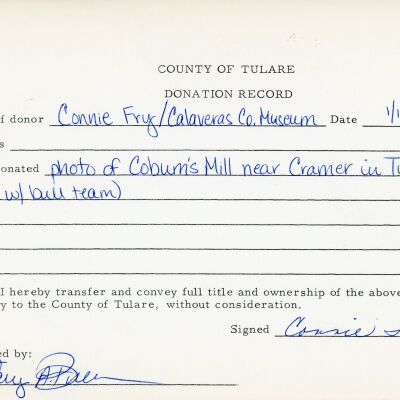 COUNTY OF TULARE
DONATION RECORD
f donor Connie Fry/Calaveras Co. Museum Date 1/1
s
onated photo of Coburn's Mill near Cramer in Tu
w/ bull team)
I hereby transfer and convey full title and ownership of the above
y to the County of Tulare, without consideration.
Signed Connie
ed by: